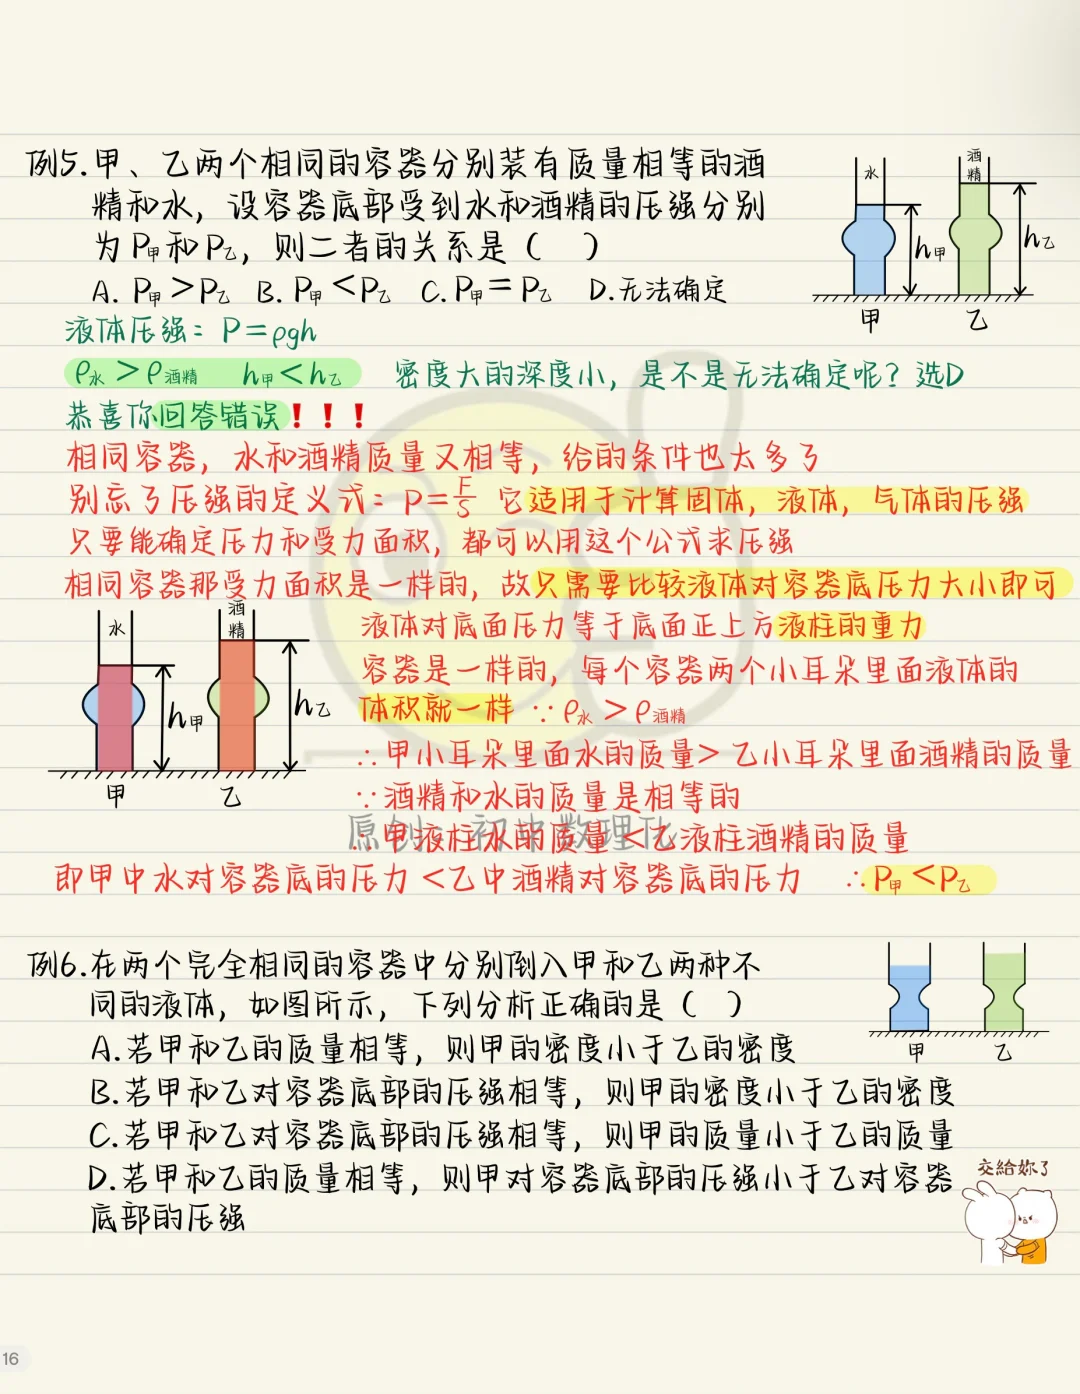 例5.甲、乙两个相同的容器分别装有质量相等的酒
精和水，设容器底部受到水和酒精的压强分别
为P甲和P乙，则二者的关系是（ ）
A. P甲>P乙 B. P甲<P乙 C. P甲=P乙 D.无法确定
水
酒
精
h甲
h乙
甲
乙
液体压强：P=ρgh
ρ水>ρ酒精 h甲<h乙 密度大的深度小，是不是无法确定呢？选D
恭喜你回答错误！！！
相同容器，水和酒精质量又相等，给的条件也太多了
别忘了压强的定义式：P=F/S 它适用于计算固体，液体，气体的压强
只要能确定压力和受力面积，都可以用这个公式求压强
相同容器那受力面积是一样的，故只需要比较液体对容器底压力大小即可
水
酒
精
h甲
h乙
甲
乙
液体对底面压力等于底面正上方液柱的重力
容器是一样的，每个容器两个小耳朵里面液体的
体积就一样 ∵ρ水>ρ酒精
∴甲小耳朵里面水的质量>乙小耳朵里面酒精的质量
∵酒精和水的质量是相等的
∴甲液柱水的质量<乙液柱酒精的质量
原创：初中数理化
即甲中水对容器底的压力<乙中酒精对容器底的压力 ∴P甲<P乙
例6.在两个完全相同的容器中分别倒入甲和乙两种不
同的液体，如图所示，下列分析正确的是（ ）
A.若甲和乙的质量相等，则甲的密度小于乙的密度
B.若甲和乙对容器底部的压强相等，则甲的密度小于乙的密度
C.若甲和乙对容器底部的压强相等，则甲的质量小于乙的质量
D.若甲和乙的质量相等，则甲对容器底部的压强小于乙对容器
底部的压强
甲
乙
交給妳了
16